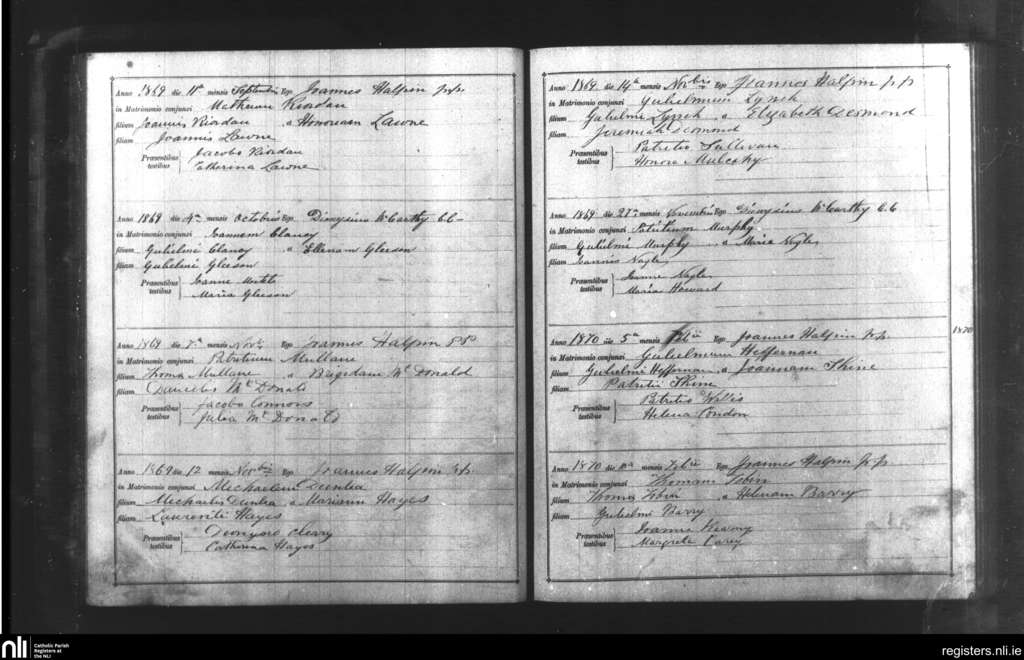 Anno 1869 die 11a mensis Septembris Ego Joannes Halpin p.p.
in Matrimonio conjunxi Matheum Riordan
filium Joannis Riordan a Honoream Lawne
filiam Joannis Lawne
Præsentibus testibus Jacobo Riordan
Catherina Lawne
Anno 1869 die 4a mensis Octobris Ego Dionysius McCarthy C.C.
in Matrimonio conjunxi Joannem Clancy
filium Gulielmi Clancy a Ellenam Gleeson
filiam Gulielmi Gleeson
Præsentibus testibus Joanne
Maria Gleeson
Anno 1869 die 7a mensis Novbris Ego Joannes Halpin P.P.
in Matrimonio conjunxi Patritium Mullane
filium Thoma Mullane a Brigidam McDonald
filiam McDonald
Præsentibus testibus Jacobo Connors
Julia McDonald
Anno 1869 die 12 mensis Novbris Ego Joannes Halpin p.p.
in Matrimonio conjunxi Michaelem
filium Michaelis a Mariam Hayes
filiam Laurentii Hayes
Præsentibus testibus Cleary
Catherina Hayes
Anno 1869 die 14a mensis Novbris Ego Joannes Halpin p.p.
in Matrimonio conjunxi Gulielmum Lynch
filium Gulielmi Lynch a Elizabeth Desmond
filiam Jeremiah Desmond
Præsentibus testibus Patritio Sullivan
Honora Mulcahy
Anno 1869 die 27a mensis Novembris Ego Dionysius McCarthy C.C
in Matrimonio conjunxi Patritium Murphy
filium Gulielmi Murphy a Maria Nagle
filiam Joannis Nagle
Præsentibus testibus Joanne Nagle
Maria Howard
1870
Anno 1870 die 5a mensis Febii Ego Joannes Halpin p.p.
in Matrimonio conjunxi Gulielmum Heffernan
filium Gulielmi Heffernan a Joannam Shine
filiam Patritii Shine
Præsentibus testibus Patritio Wallis
Helena Condon
Anno 1870 die mensis Febii Ego Joannes Halpin p.p.
in Matrimonio conjunxi Thomam Tobin
filium Thoma Tobin a Helenam Barry
filiam Gulielmi Barry
Præsentibus testibus Joanne Kearny
Margreta Carey
nli Catholic Parish Registers at the NLI
registers.nli.ie